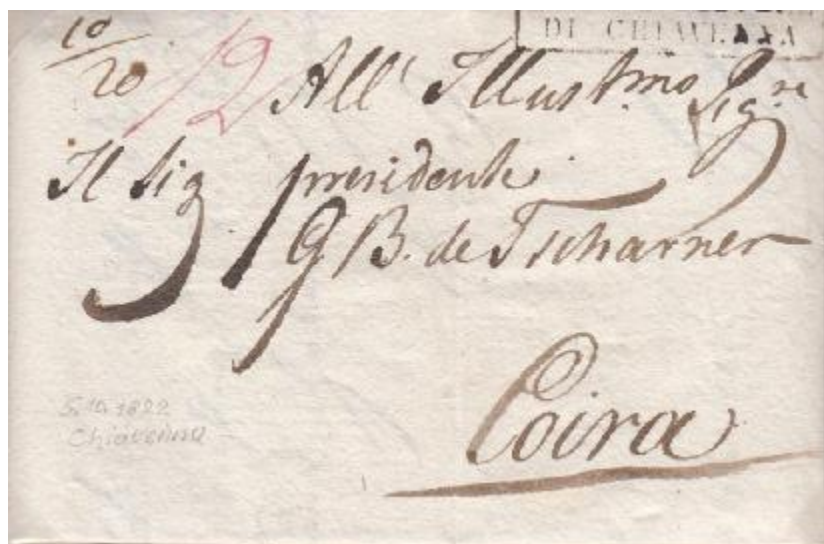 DI CHIAVENNA
10
20
12
All' Illustmo Sigre
Il Sig presidente
G B. de Tscharner
Coira
5.10.1822
Chiavenna